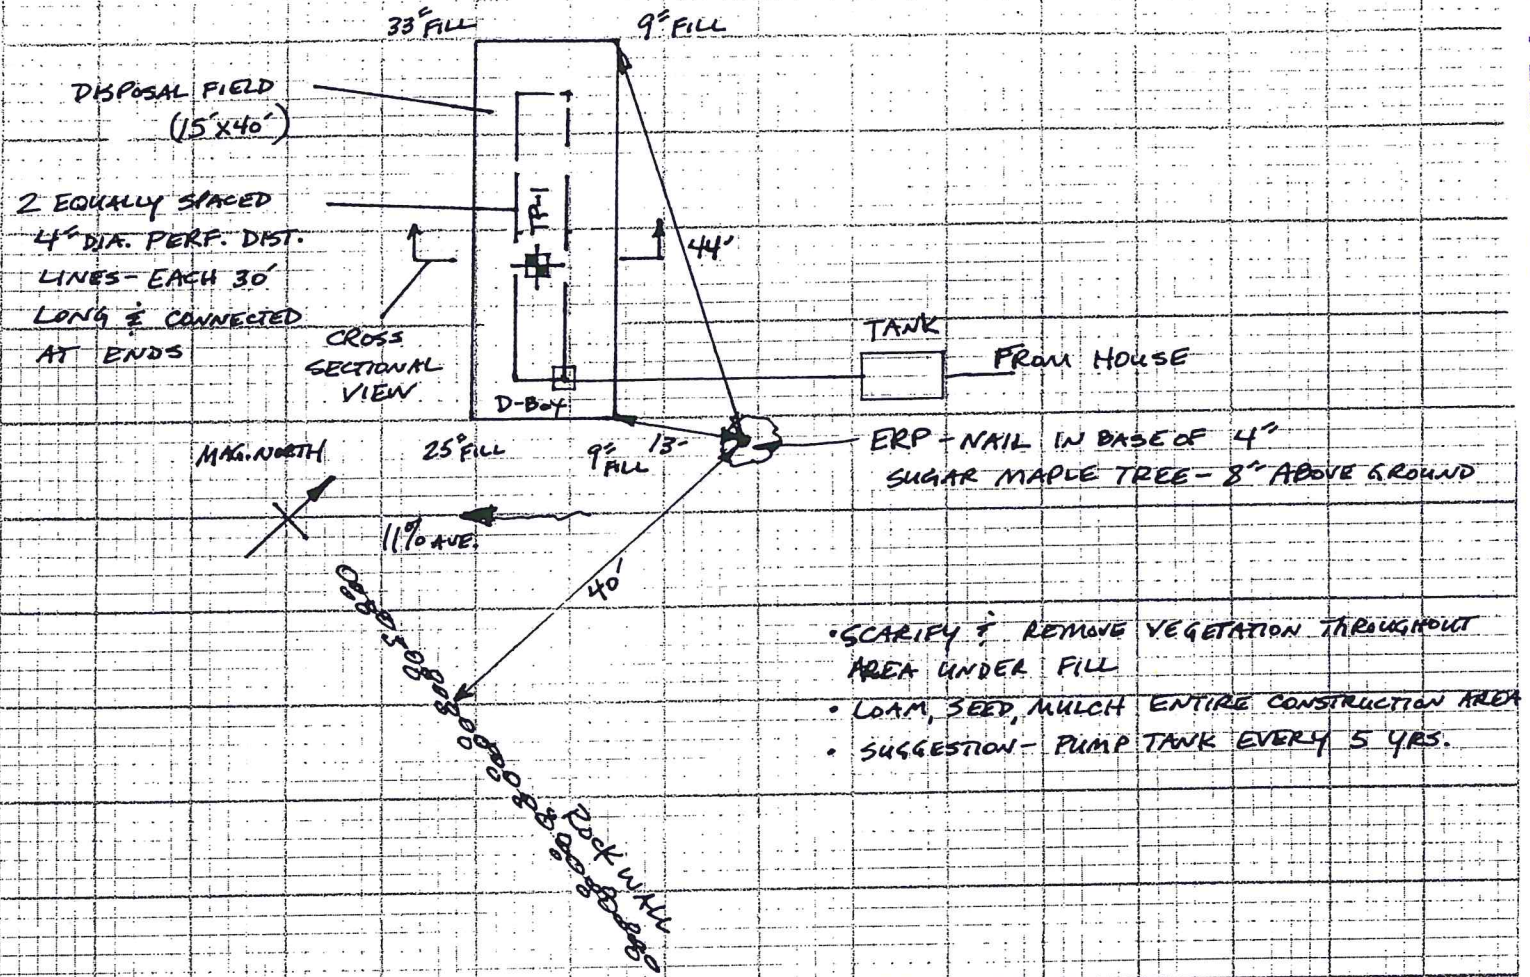 33" FILL
9" FILL
DISPOSAL FIELD
(15'X40')
2 EQUALLY SPACED
4" DIA. PERF. DIST.
LINES - EACH 30'
LONG & CONNECTED
AT ENDS
TP-1
44'
CROSS
SECTIONAL
VIEW
TANK
FROM HOUSE
D-BOX
MAG. NORTH
25" FILL
9"
FILL
13'
ERP - NAIL IN BASE OF 4"
SUGAR MAPLE TREE - 8" ABOVE GROUND
11% AVE.
40'
• SCARIFY & REMOVE VEGETATION THROUGHOUT
AREA UNDER FILL
• LOAM, SEED, MULCH ENTIRE CONSTRUCTION AREA
• SUGGESTION - PUMP TANK EVERY 5 YRS.
ROCK WALL